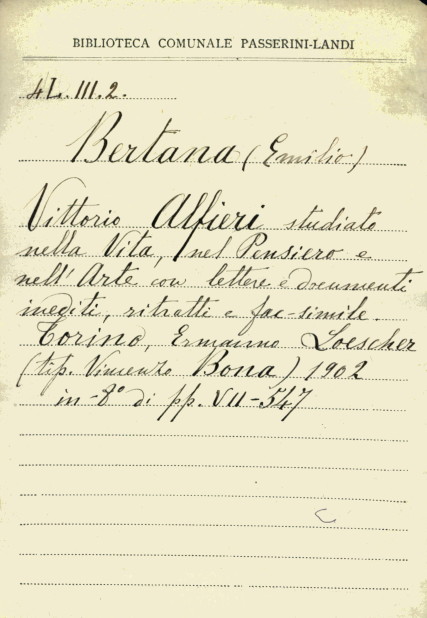 BIBLIOTECA COMUNALE PASSERINI-LANDI
4L. III. 2.
Bertana (Emilio)
Vittorio Alfieri studiato
nella Vita, nel Pensiero e
nell' Arte con lettere e documenti
inediti, ritratti e fac-simile.
Torino, Ermanno Loescher
(tip. Vincenzo Bona) 1902
in-8° di pp. VII-547